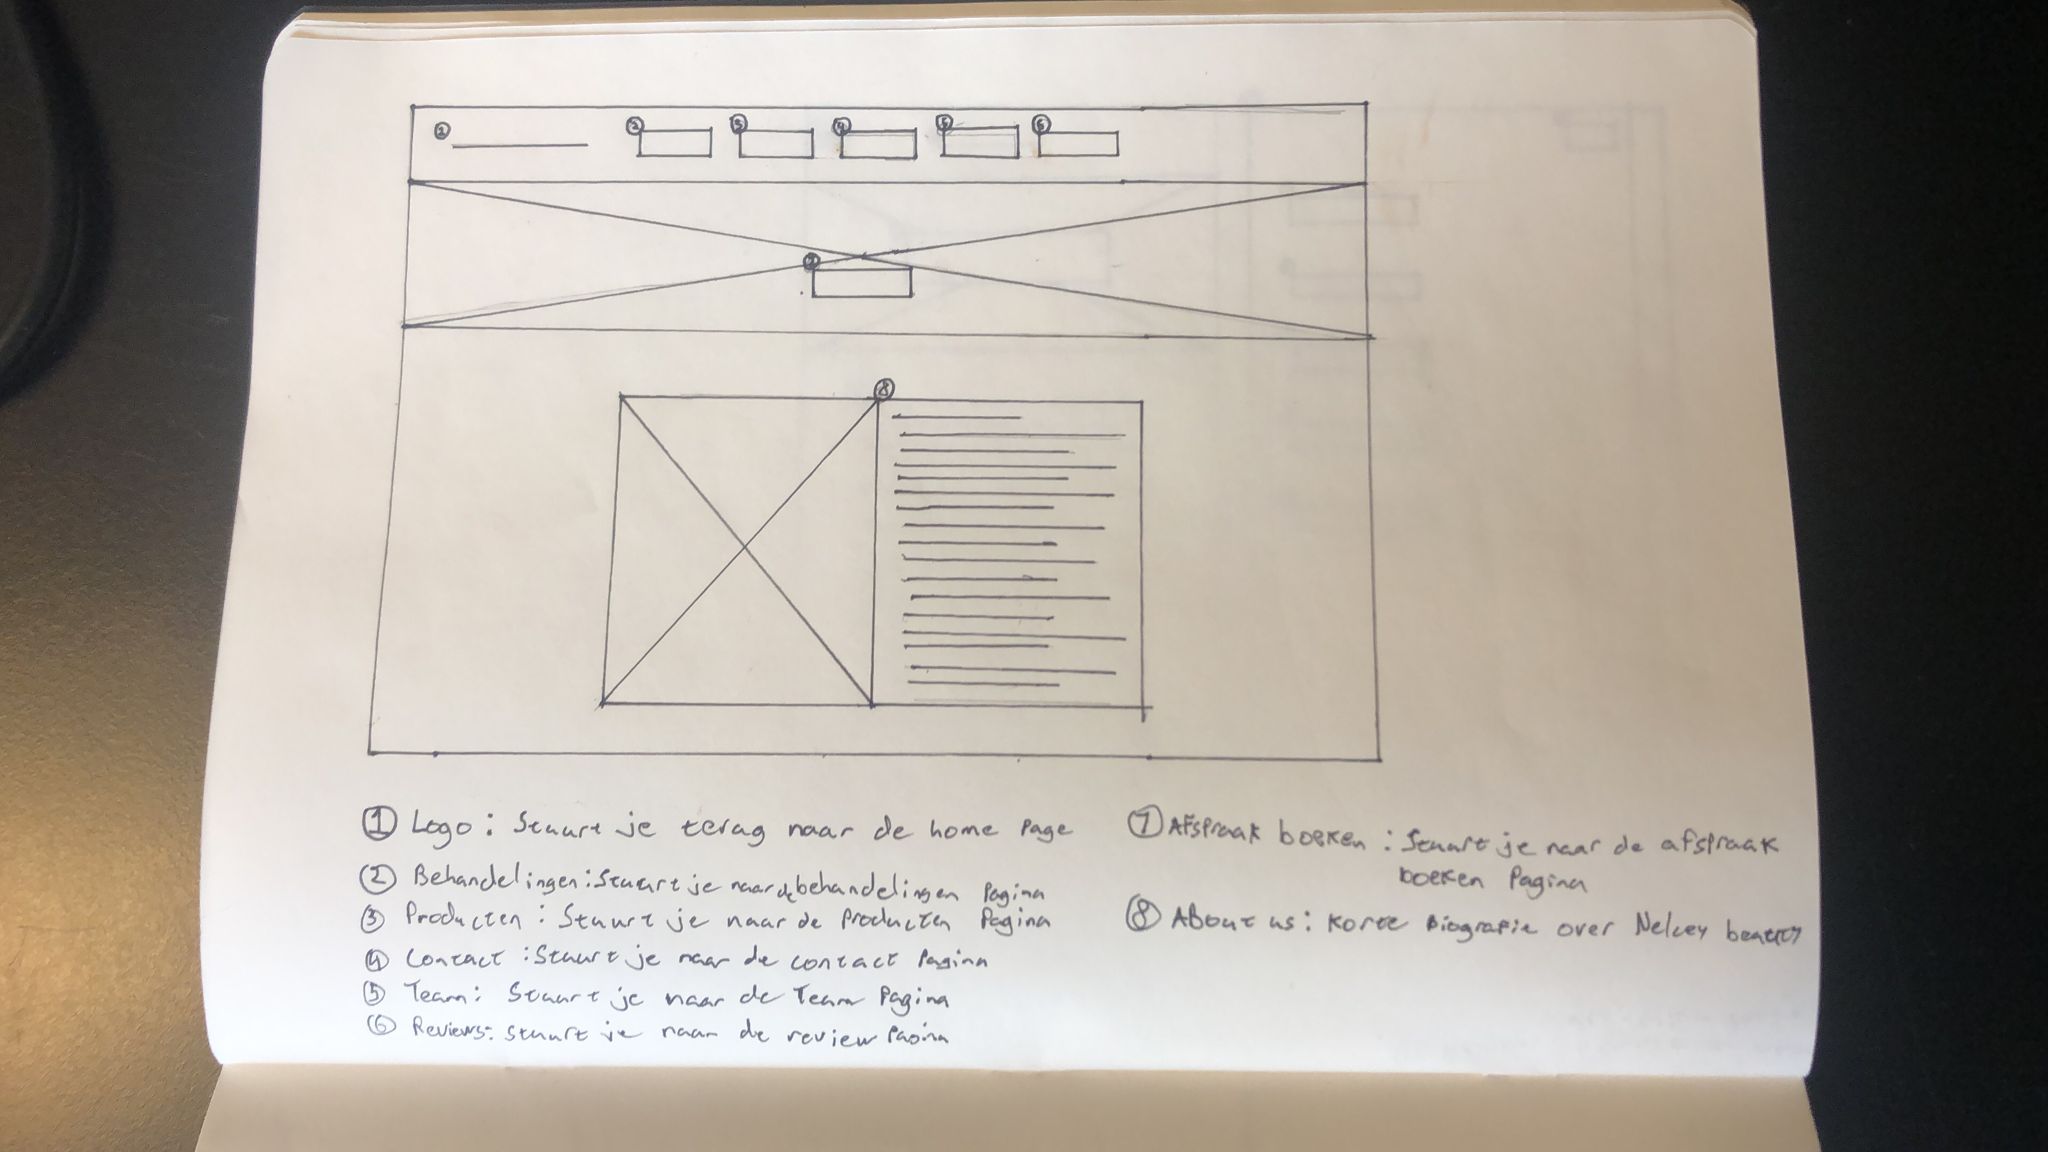 ① ② ③ ④ ⑤ ⑥
⑦
⑧
① Logo : Stuurt je terug naar de home Page
② Behandelingen : Stuurt je naar de behandelingen Pagina
③ Producten : Stuurt je naar de Producten Pagina
④ Contact : Stuurt je naar de contact Pagina
⑤ Team : Stuurt je naar de Team Pagina
⑥ Reviews : Stuurt je naar de review Pagina
⑦ Afspraak boeken : Stuurt je naar de afspraak
boeken Pagina
⑧ About us : Korte Biografie over Nelcey beauty